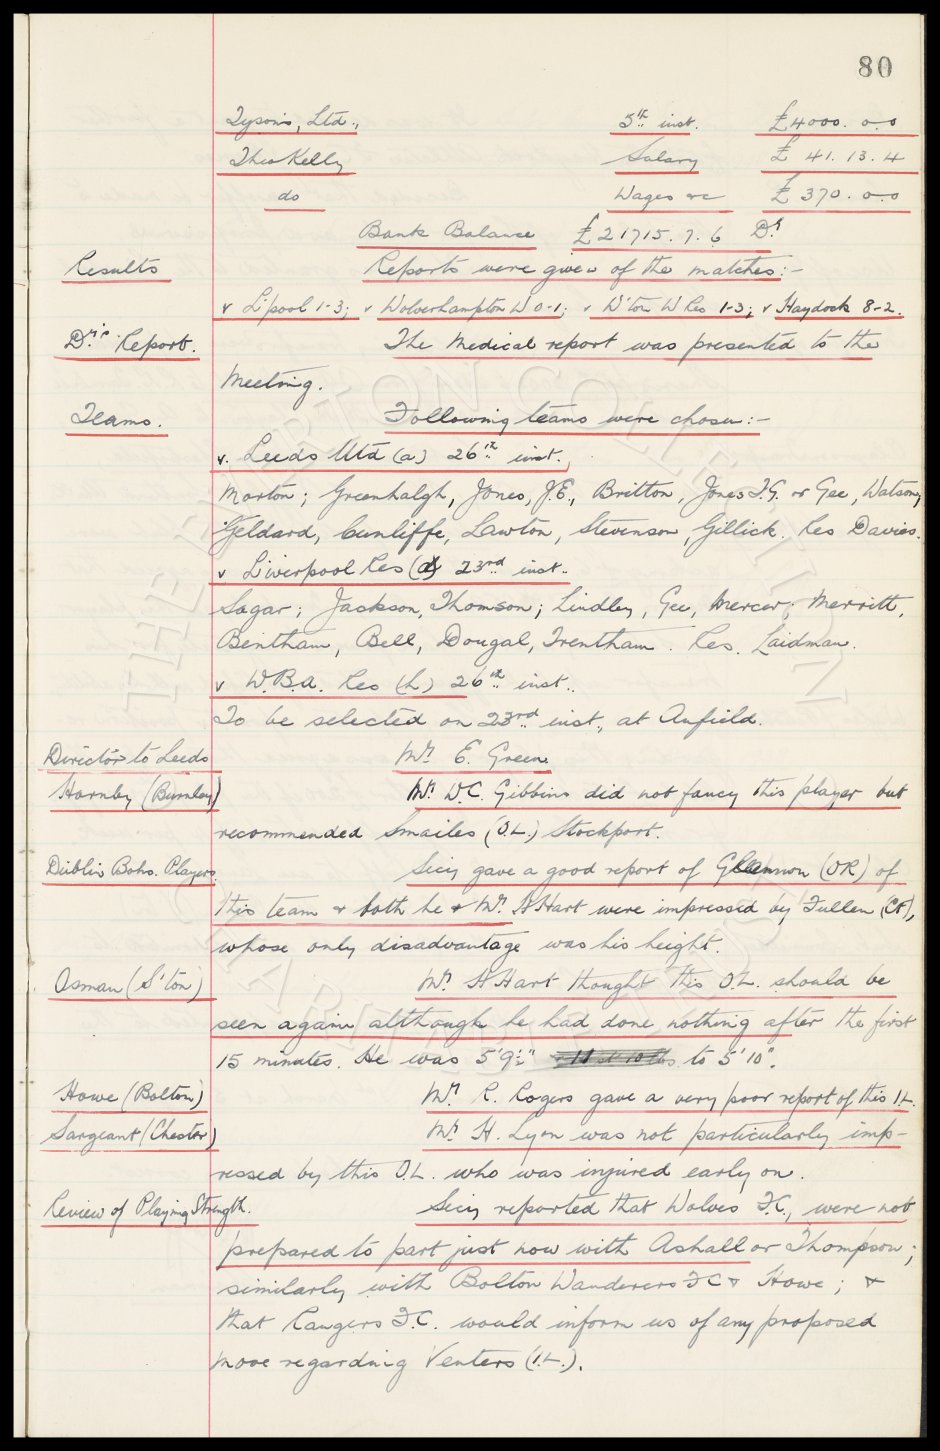 80
Tyson's, Ltd., 5th inst. £4000.0.0
Theo Kelly Salary £ 41.13.4
do Wages &c £ 370.0.0
Bank Balance £21715.7.6 Dr
Results Reports were given of the matches:-
v L'pool 1-3; v Wolverhampton W 0-1; v W'ton W Res 1-3; v Haydock 8-2.
Dr's Report. The Medical report was presented to the
Meeting.
Teams. Following teams were chosen:-
v. Leeds Utd (a) 26th inst.,
Morton; Greenhalgh, Jones, J.E., Britton, Jones T.G. or Gee, Watson,
Geldard, Cunliffe, Lawton, Stevenson, Gillick. Res Davies.
v Liverpool Res (a) 23rd inst.
Sagar; Jackson, Thomson; Lindley, Gee, Mercer; Merritt,
Bentham, Bell, Dougal, Trentham. Res. Laidman.
v W.B.A. Res (h) 26th inst..
To be selected on 23rd inst., at Anfield.
Director to Leeds Mr E. Green
Hornby (Burnley) Mr W.C. Gibbins did not fancy this player but
recommended Smailes (O.L.) Stockport.
Dublin Bohs. Players. Secy gave a good report of Glennon (OR) of
this team & both he & Mr A Hart were impressed by Fullen (CF),
whose only disadvantage was his height.
Osman (S'ton) Mr A Hart thought this O.L. should be
seen again although he had done nothing after the first
15 minutes. He was 5'9½" to 5'10".
Howe (Bolton) Mr R. Rogers gave a very poor report of this I.L.
Sargeant (Chester) Mr H. Lyon was not particularly imp-
ressed by this O.L. who was injured early on.
Review of Playing Strength. Secy reported that Wolves F.C., were not
prepared to part just now with Ashall or Thompson;
similarly with Bolton Wanderers F C & Howe; &
that Rangers F.C. would inform us of any proposed
move regarding Venters (I.L.).
THE EVERTON COLLECTION